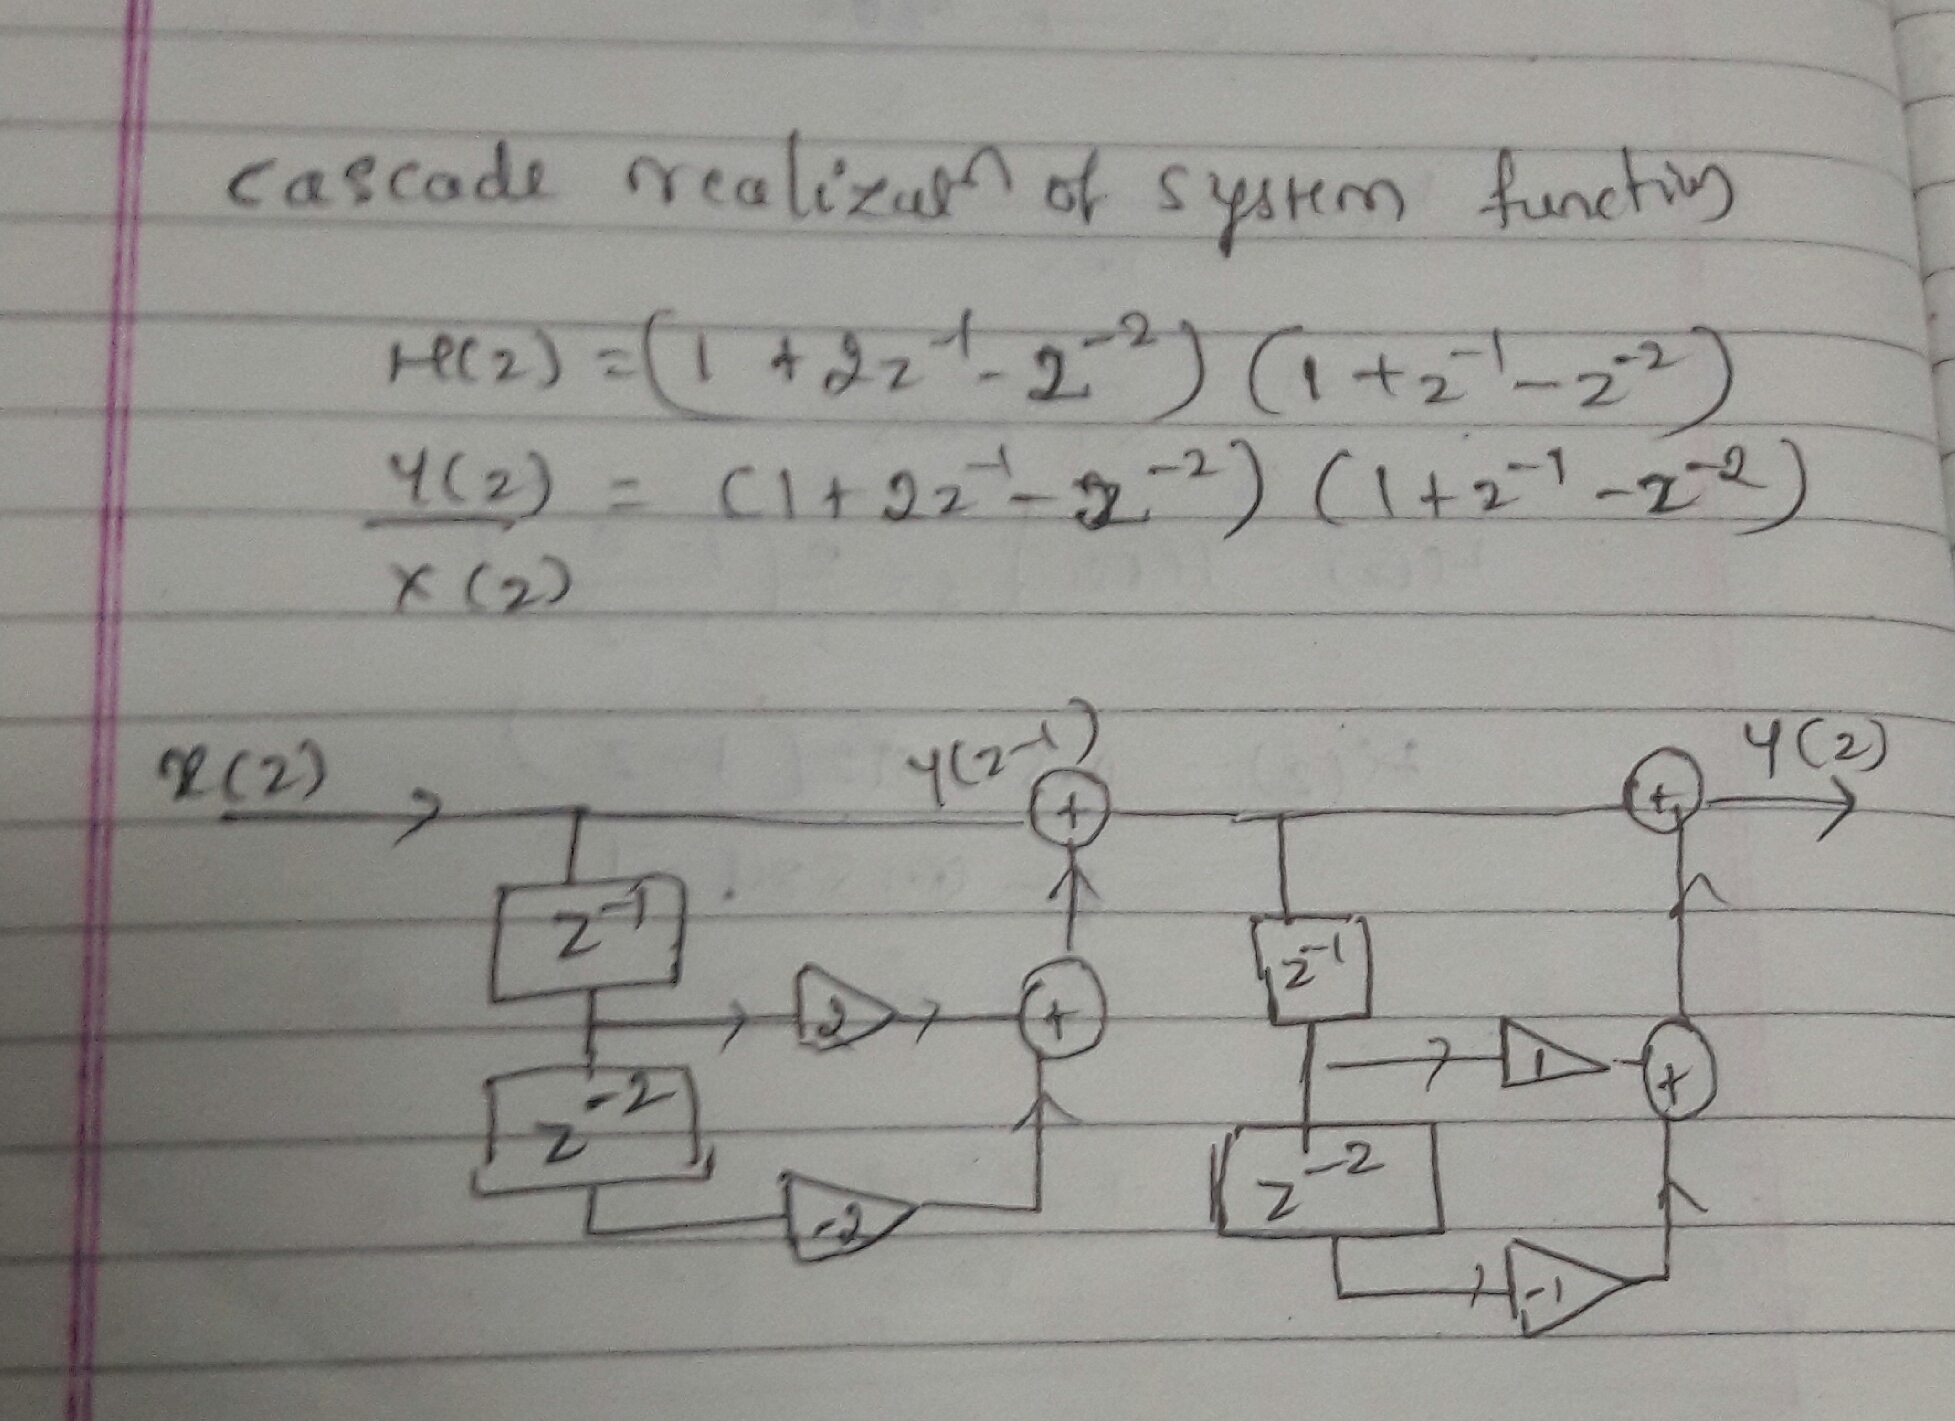 cascade realizatn of system functions
H(z) = (1 + 2z⁻¹ - z⁻²) (1 + z⁻¹ - z⁻²)
Y(z) = (1 + 2z⁻¹ - z⁻²) (1 + z⁻¹ - z⁻²)
X(z)
x(z) y(z⁻¹) + + y(z)
z⁻¹ z⁻¹
2 + 1 +
z⁻² z⁻²
-2 -1